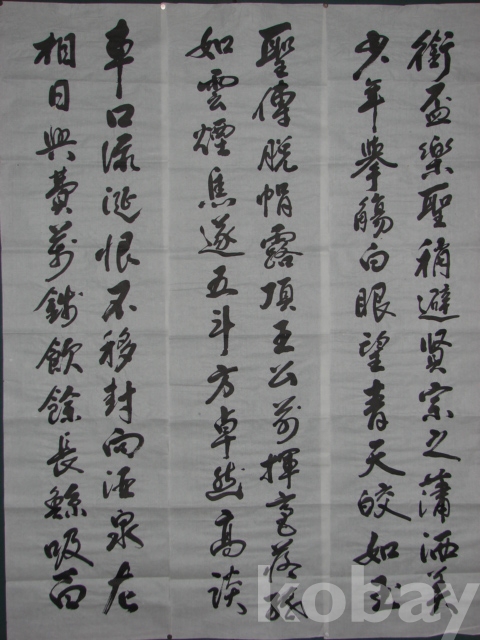 銜盃樂聖稱避賢宗之瀟洒美
少年擧觴白眼望青天皎如玉
聖傳脫帽露頂王公前揮毫落紙
如雲煙焦遂五斗方卓然高談
車口流涎恨不移封向酒泉左
相日興費萬錢飲餘長鯨吸百
kobay